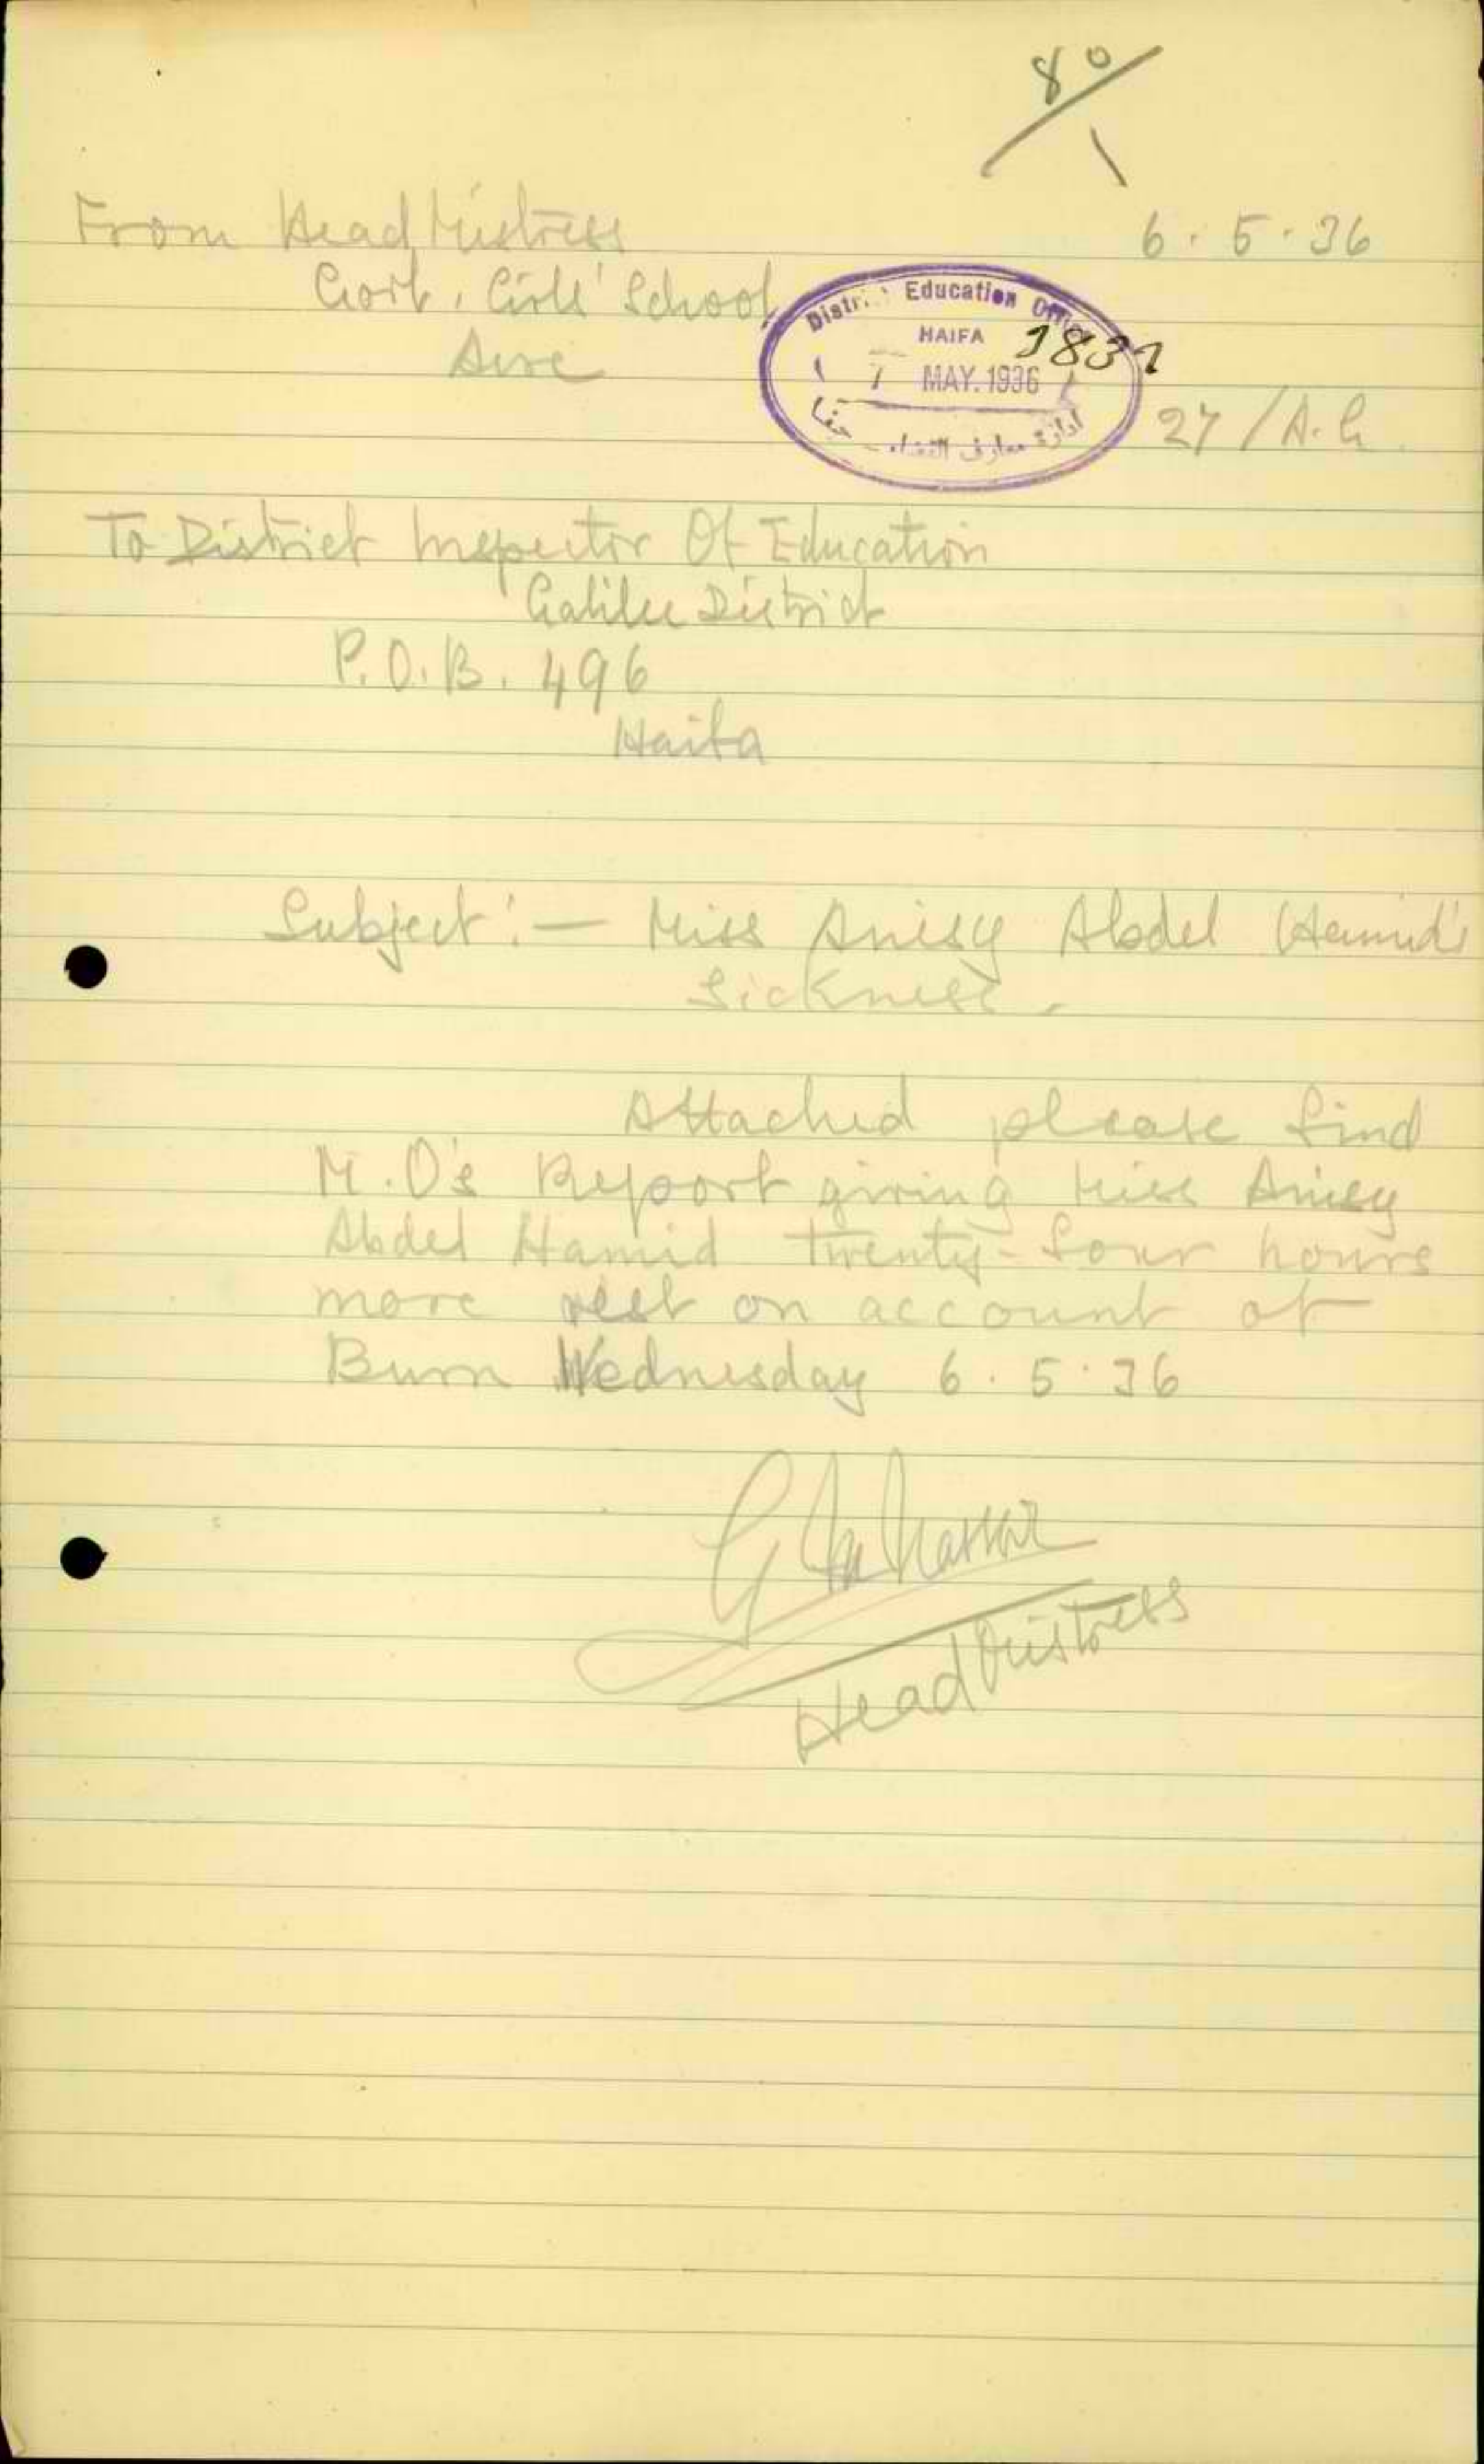 80/1
From Head Mistress
6.5.36
Govt. Girls' School
Acre
District Education Office
HAIFA
7 MAY. 1936
ادارة معارف القضاء - حيفا
27/A.G.
To District Inspector Of Education
Galilee District
P.O.B. 496
Haifa
Subject:- Miss Anisy Abdel Hamid's
Sickness.
Attached please find
M.O's Report giving Miss Anisy
Abdel Hamid twenty-four hours
more rest on account of
Burn Wednesday 6.5.36
Head Mistress